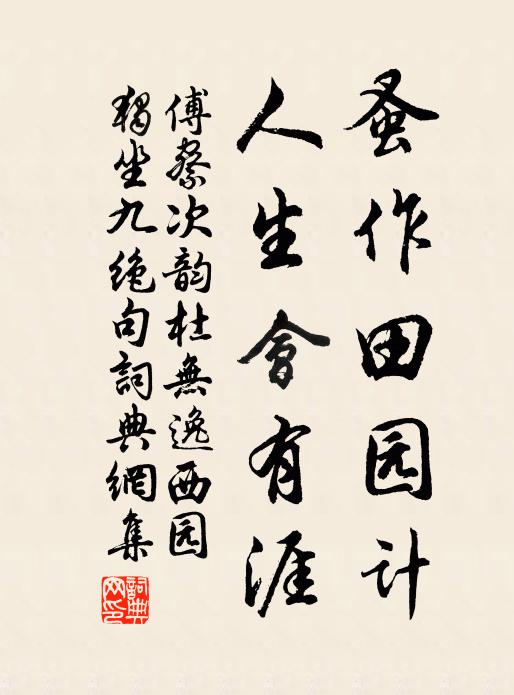 蚤作田园计
人生會有涯
傅察次韵杜無逸西园
獨坐九絶句詞典網集
詞典網印